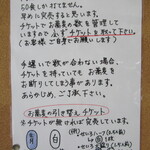 50食しか打てません。
早めに完売すると思います。
チケットでお蕎麦の数を管理して
いますので 必ずチケットを取って下さい。
(お客様ご自身でお願いします)
手違いで数が合わない場合、
チケットを持っていても お蕎麦を
お断りしてしまう事があります。
あらかじめ、ご了承下さい。
お蕎麦の引き替えチケット
※チケットが無ければ完売しています。